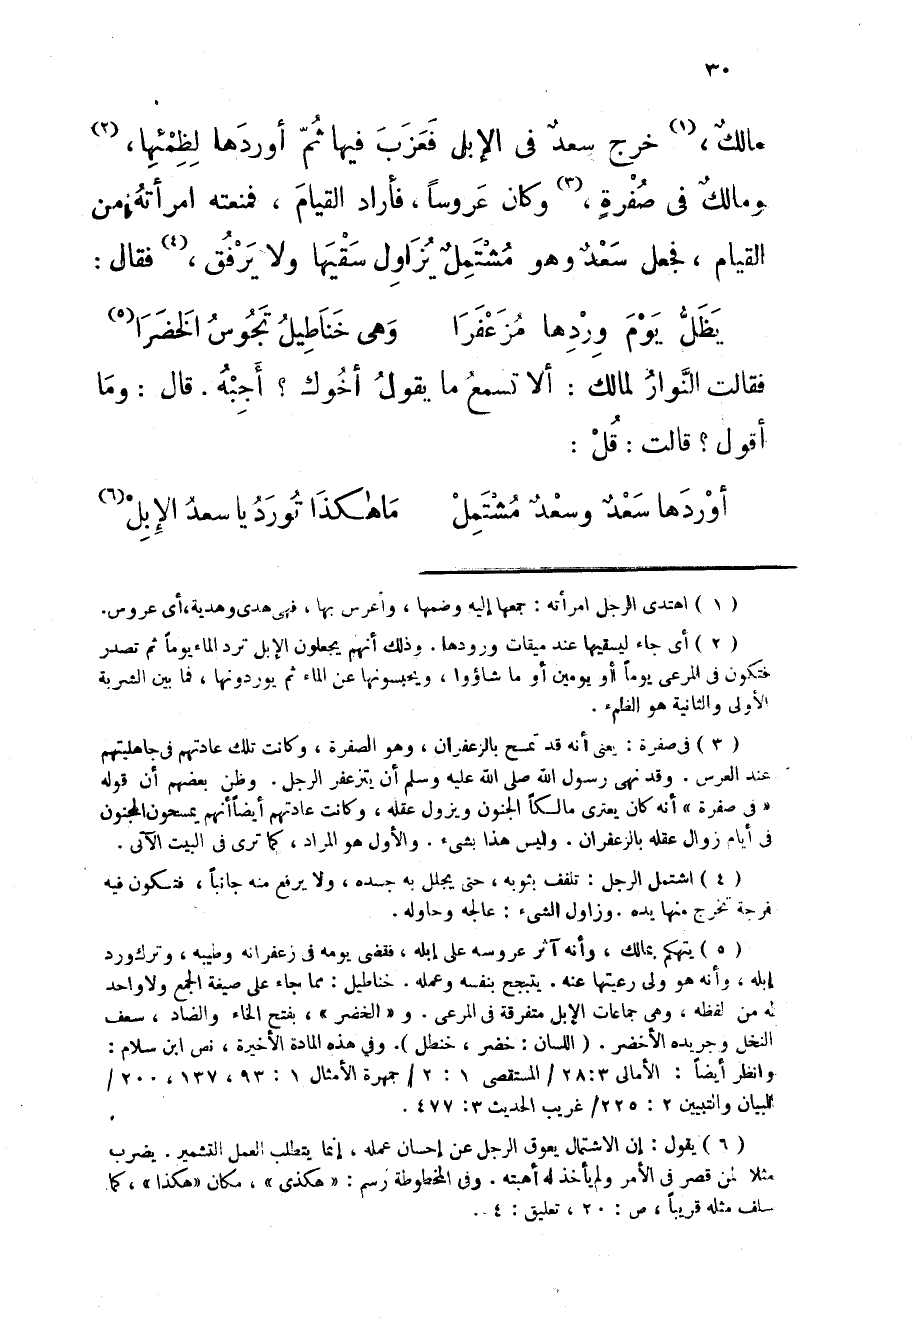 ٣٠
مالكٌ ،(١) خرج سعدٌ فى الإبل فَعَزَبَ فيها ثُمّ أوردَها لِظِمْئِها ،(٢)
ومالكٌ فى صُفْرةٍ ،(٣) وكان عَروساً ، فأراد القيامَ ، فمنعته امرأتهُ من
القيام ، فجعل سَعْدٌ وهو مُشْتَمِلٌ يُزَاوِل سَقْيَها ولا يَرْفُق ،(٤) فقال :
يَظَلُّ يَوْمَ وِرْدِها مُزَعْفَرَا وَهى خَنَاطِيلُ تَجُوسُ الخَضَرَا(٥)
فقالت النَّوارُ لمالك : ألا تسمعُ ما يقولُ أخُوك ؟ أَجِبْهُ . قال : ومَا
أقول ؟ قالت : قُلْ :
أوْردَها سَعْدٌ وسعْدٌ مُشْتَمِلْ مَاهٰكذَا تُورَدُ يا سعدُ الإبِلْ(٦)
( ١ ) اهتدى الرجل امرأته : جمعها إليه وضمها ، وأعرس بها ، فهى هدى وهدية ، أى عروس .
( ٢ ) أى جاء ليسقيها عند ميقات ورودها . وذلك أنهم يجعلون الإبل ترد الماء يوماً ثم تصدر
فتكون فى المرعى يوماً أو يومين أو ما شاؤوا ، ويحبسونها عن الماء ثم يوردونها ، فما بين الشربة
الأولى والثانية هو الظمء .
( ٣ ) فى صفرة : يعنى أنه قد تمسح بالزعفران ، وهو الصفرة ، وكانت تلك عادتهم فى جاهليتهم
عند العرس . وقد نهى رسول الله صلى الله عليه وسلم أن يتزعفر الرجل . وظن بعضهم أن قوله
« فى صفرة » أنه كان يعترى مالكاً الجنون ويزول عقله ، وكانت عادتهم أيضاً أنهم يمسحون المجنون
فى أيام زوال عقله بالزعفران . وليس هذا بشىء . والأول هو المراد ، كما ترى فى البيت الآتى .
( ٤ ) اشتمل الرجل : تلفف بثوبه ، حتى يجلل به جسده ، ولا يرفع منه جانباً ، فتكون فيه
فرجة تخرج منها يده . وزاول الشىء : عالجه وحاوله .
( ٥ ) يتهكم بمالك ، وأنه آثر عروسه على إبله ، فقضى يومه فى زعفرانه وطيبه ، وترك ورد
إبله ، وأنه هو ولى رعيتها عنه . يتبجح بنفسه وعمله . خناطيل : مما جاء على صيغة الجمع ولا واحد
له من لفظه ، وهى جماعات الإبل متفرقة فى المرعى . و « الخضر » ، بفتح الخاء والضاد ، سعف
النخل وجريده الأخضر . ( اللسان : خضر ، خنطل ) . وفى هذه المادة الأخيرة ، نص ابن سلام :
وانظر أيضاً : الأمالى ٣ : ٢٨ / المستقصى ١ : ٢ / جمهرة الأمثال ١ : ٩٣ ، ١٣٧ ، ٢٠٠ /
البيان والتبيين ٢ : ٢٢٥ / غريب الحديث ٣ : ٤٧٧ .
( ٦ ) يقول : إن الاشتمال يعوق الرجل عن إحسان عمله ، إنما يتطلب العمل التشمير . يضرب
مثلا لمن قصر فى الأمر ولم يأخذ له أهبته . وفى المخطوطة رسم : « هكذى » ، مكان « هكذا » ، كما
سلف مثله قريباً ، ص : ٢٠ ، تعليق : ٤ .